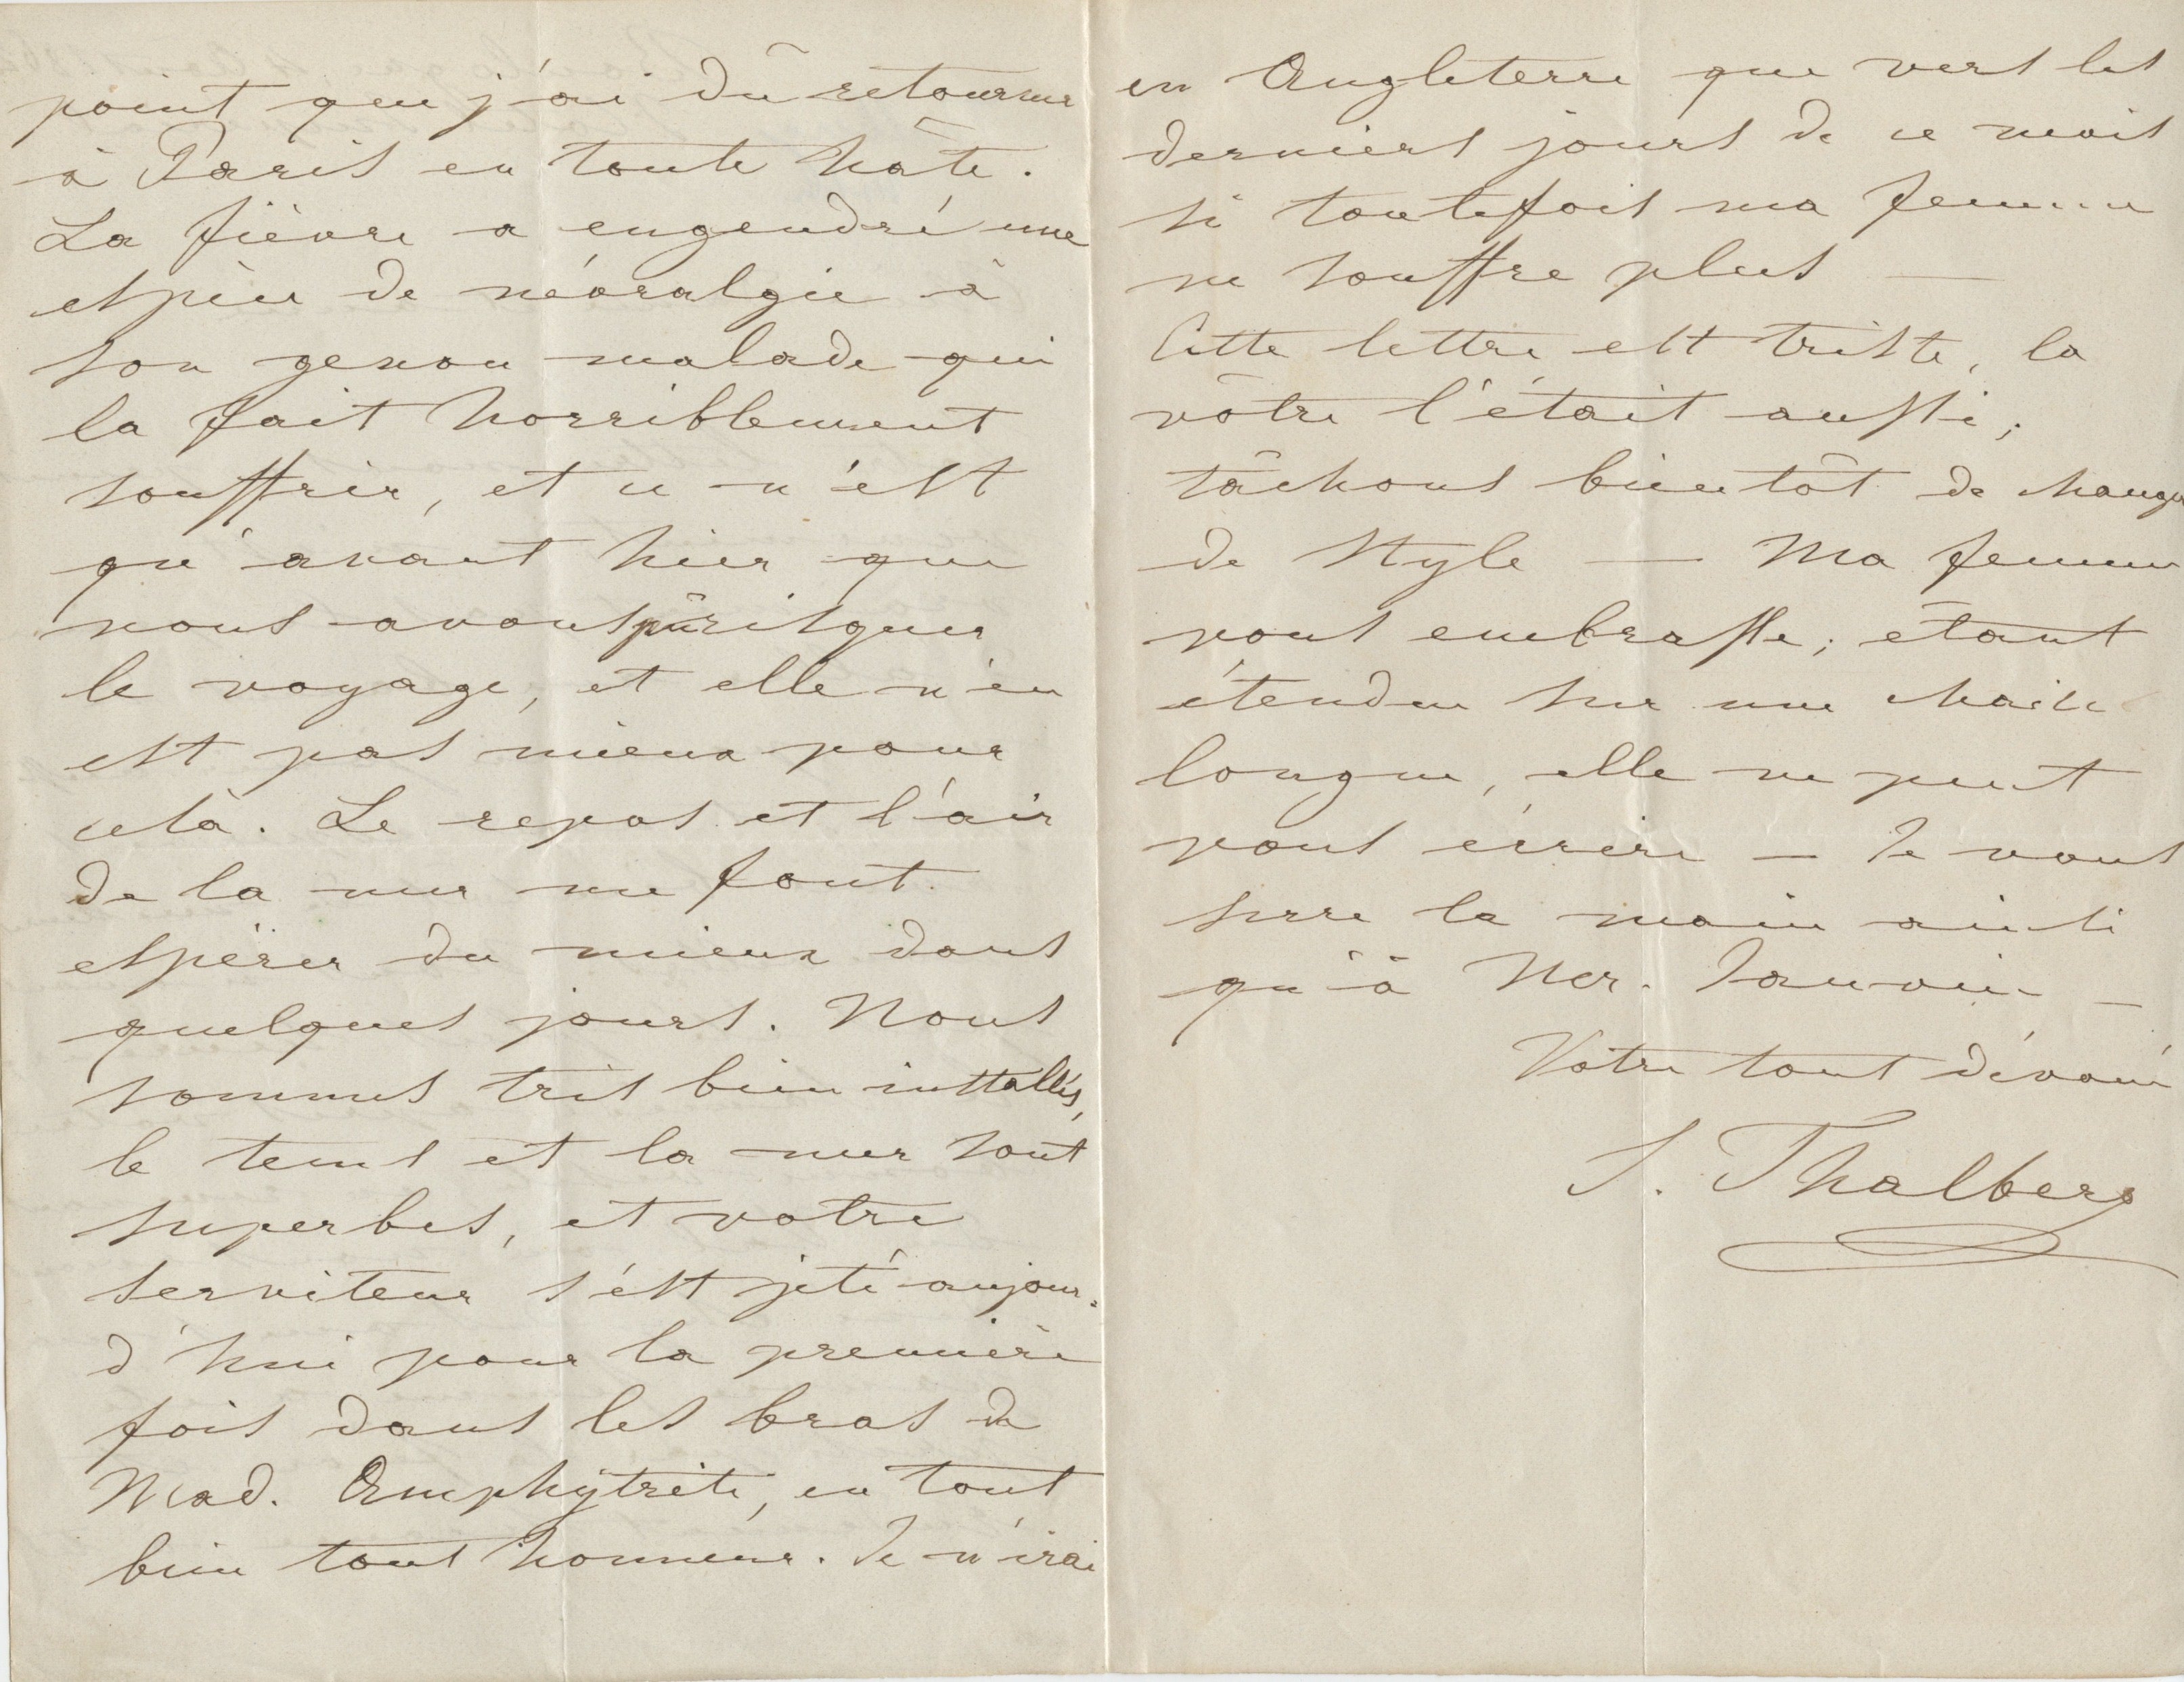 point que j'ai dû retourner
à Paris en toute hâte.
La fièvre a engendré une
espèce de névralgie à
son genou malade qui
la fait horriblement
souffrir, et ce n'est
qu'avant hier que
nous avons pû risquer
le voyage, et elle n'en
est pas mieux pour
celà. Le repos et l'air
de la mer me font
espérer du mieux dans
quelques jours. Nous
sommes très bien installés,
le tems et la mer sont
superbes, et votre
serviteur s'est jeté aujour-
d'hui pour la première
fois dans les bras de
Mad. Amphytrite, en tout
bien tout honneur. Je n'irai
en Angleterre que vers les
derniers jours de ce mois
si toutefois ma femme
ne souffre plus —
Cette lettre est triste, la
vôtre l'était aussi;
tâchons bientôt de changer
de style — Ma femme
vous embrasse; étant
étendue sur une chaise
longue, elle ne peut
vous écrire — Je vous
serre la main ainsi
qu'à Mer.
Votre tout dévoué
S. Thalberg